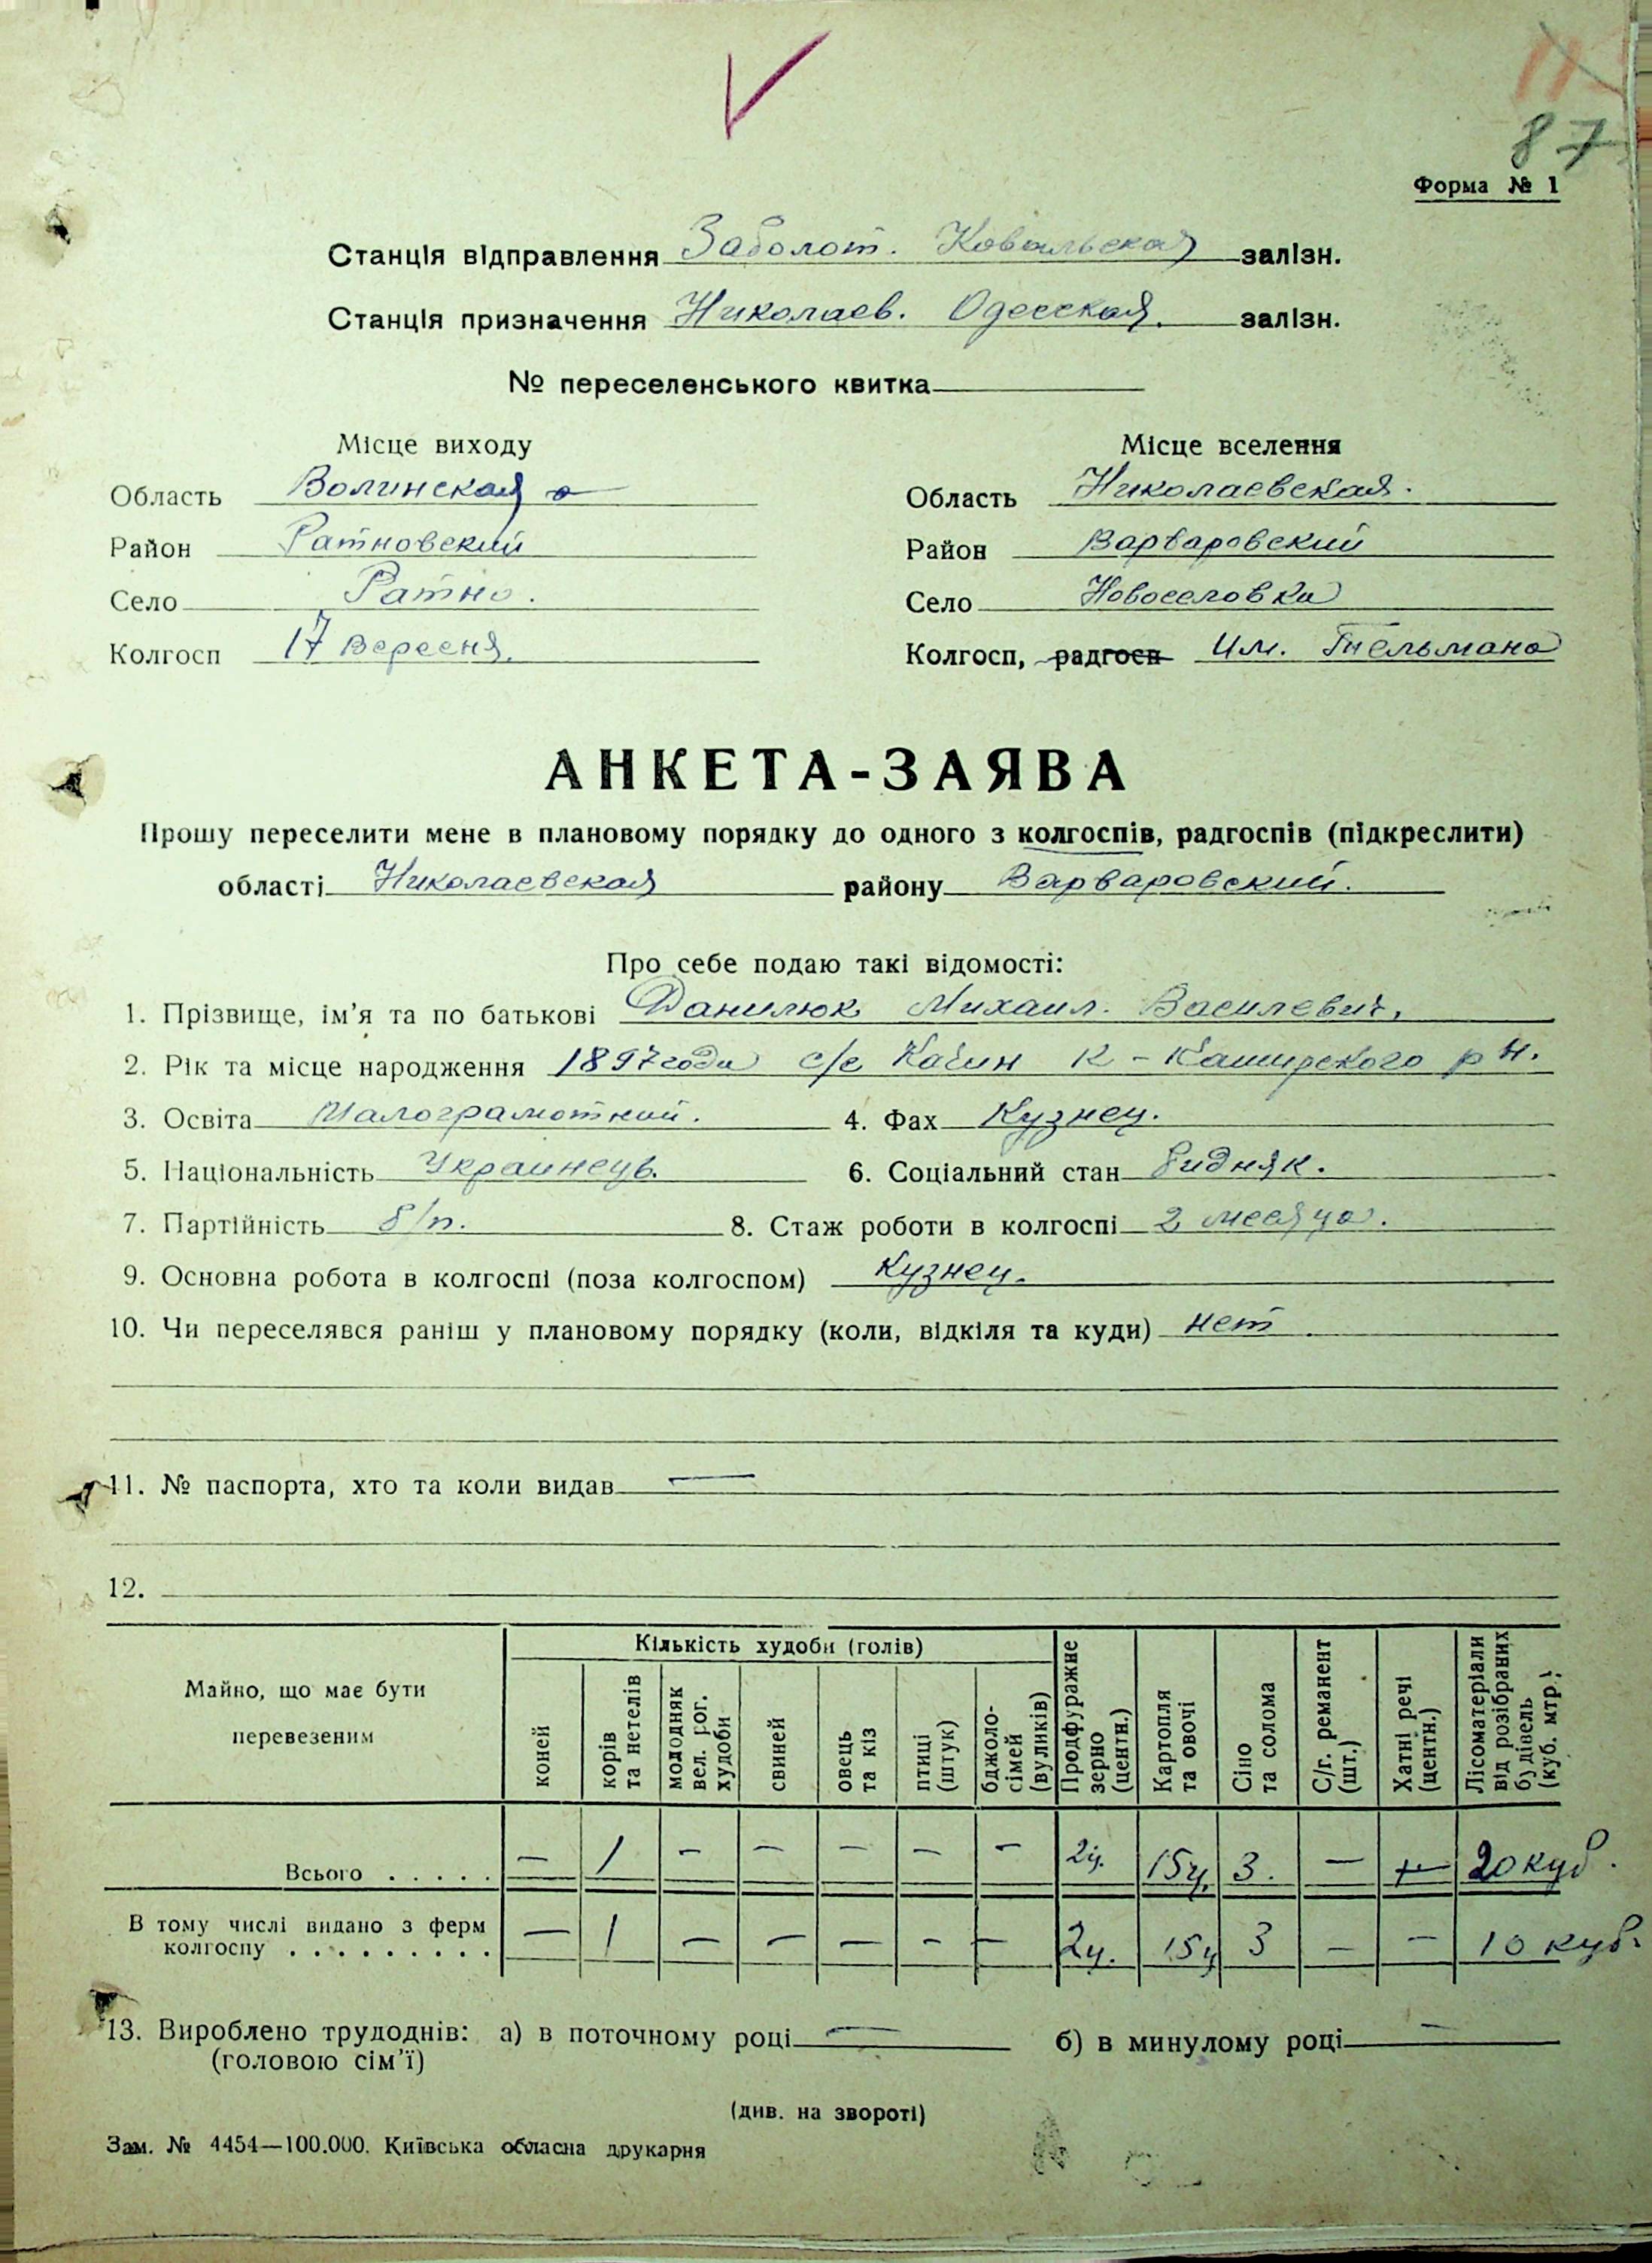 87
Форма № 1
Станція відправлення Заболот. Ковельская залізн.
Станція призначення Николаев. Одесская. залізн.
№ переселенського квитка
Місце виходу Місце вселення
Область Волинская Область Николаевская.
Район Ратновский Район Варваровский
Село Ратно. Село Новоселовка
Колгосп 17 Вересня. Колгосп, радгосп Им. Тельмана
АНКЕТА-ЗАЯВА
Прошу переселити мене в плановому порядку до одного з колгоспів, радгоспів (підкреслити)
області Николаевская району Варваровский.
Про себе подаю такі відомості:
1. Прізвище, ім’я та по батькові Данилюк Михаил. Василевич.
2. Рік та місце народження 1897 года с/с Качин К-Каширского р н.
3. Освіта Малограмотний. 4. Фах Кузнец.
5. Національність Украинець. 6. Соціальний стан бидняк.
7. Партійність б/п. 8. Стаж роботи в колгоспі 2 месяца.
9. Основна робота в колгоспі (поза колгоспом) Кузнец.
10. Чи переселявся раніш у плановому порядку (коли, відкіля та куди) нет
11. № паспорта, хто та коли видав —
12.
Майно, що має бути перевезеним
Кількість худоби (голів)
коней
корів та нетелів
молодняк вел. рог. худоби
свиней
овець та кіз
птиці (штук)
бджоло-сімей (вуликів)
Продфуражне зерно (центн.)
Картопля та овочі
Сіно та солома
С/г. реманент (шт.)
Хатні речі (центн.)
Лісоматеріали від розібраних будівель (куб. мтр.)
Всього . . . . . — 1 — — — — — 2ц. 15ц. 3. — + 20 куб.
В тому числі видано з ферм
колгоспу . . . . . . . . . — 1 — — — — — 2ц. 15ц 3 — — 10 куб.
13. Вироблено трудоднів: а) в поточному році — б) в минулому році —
(головою сім’ї)
(див. на звороті)
Зам. № 4454—100.000. Київська обласна друкарня